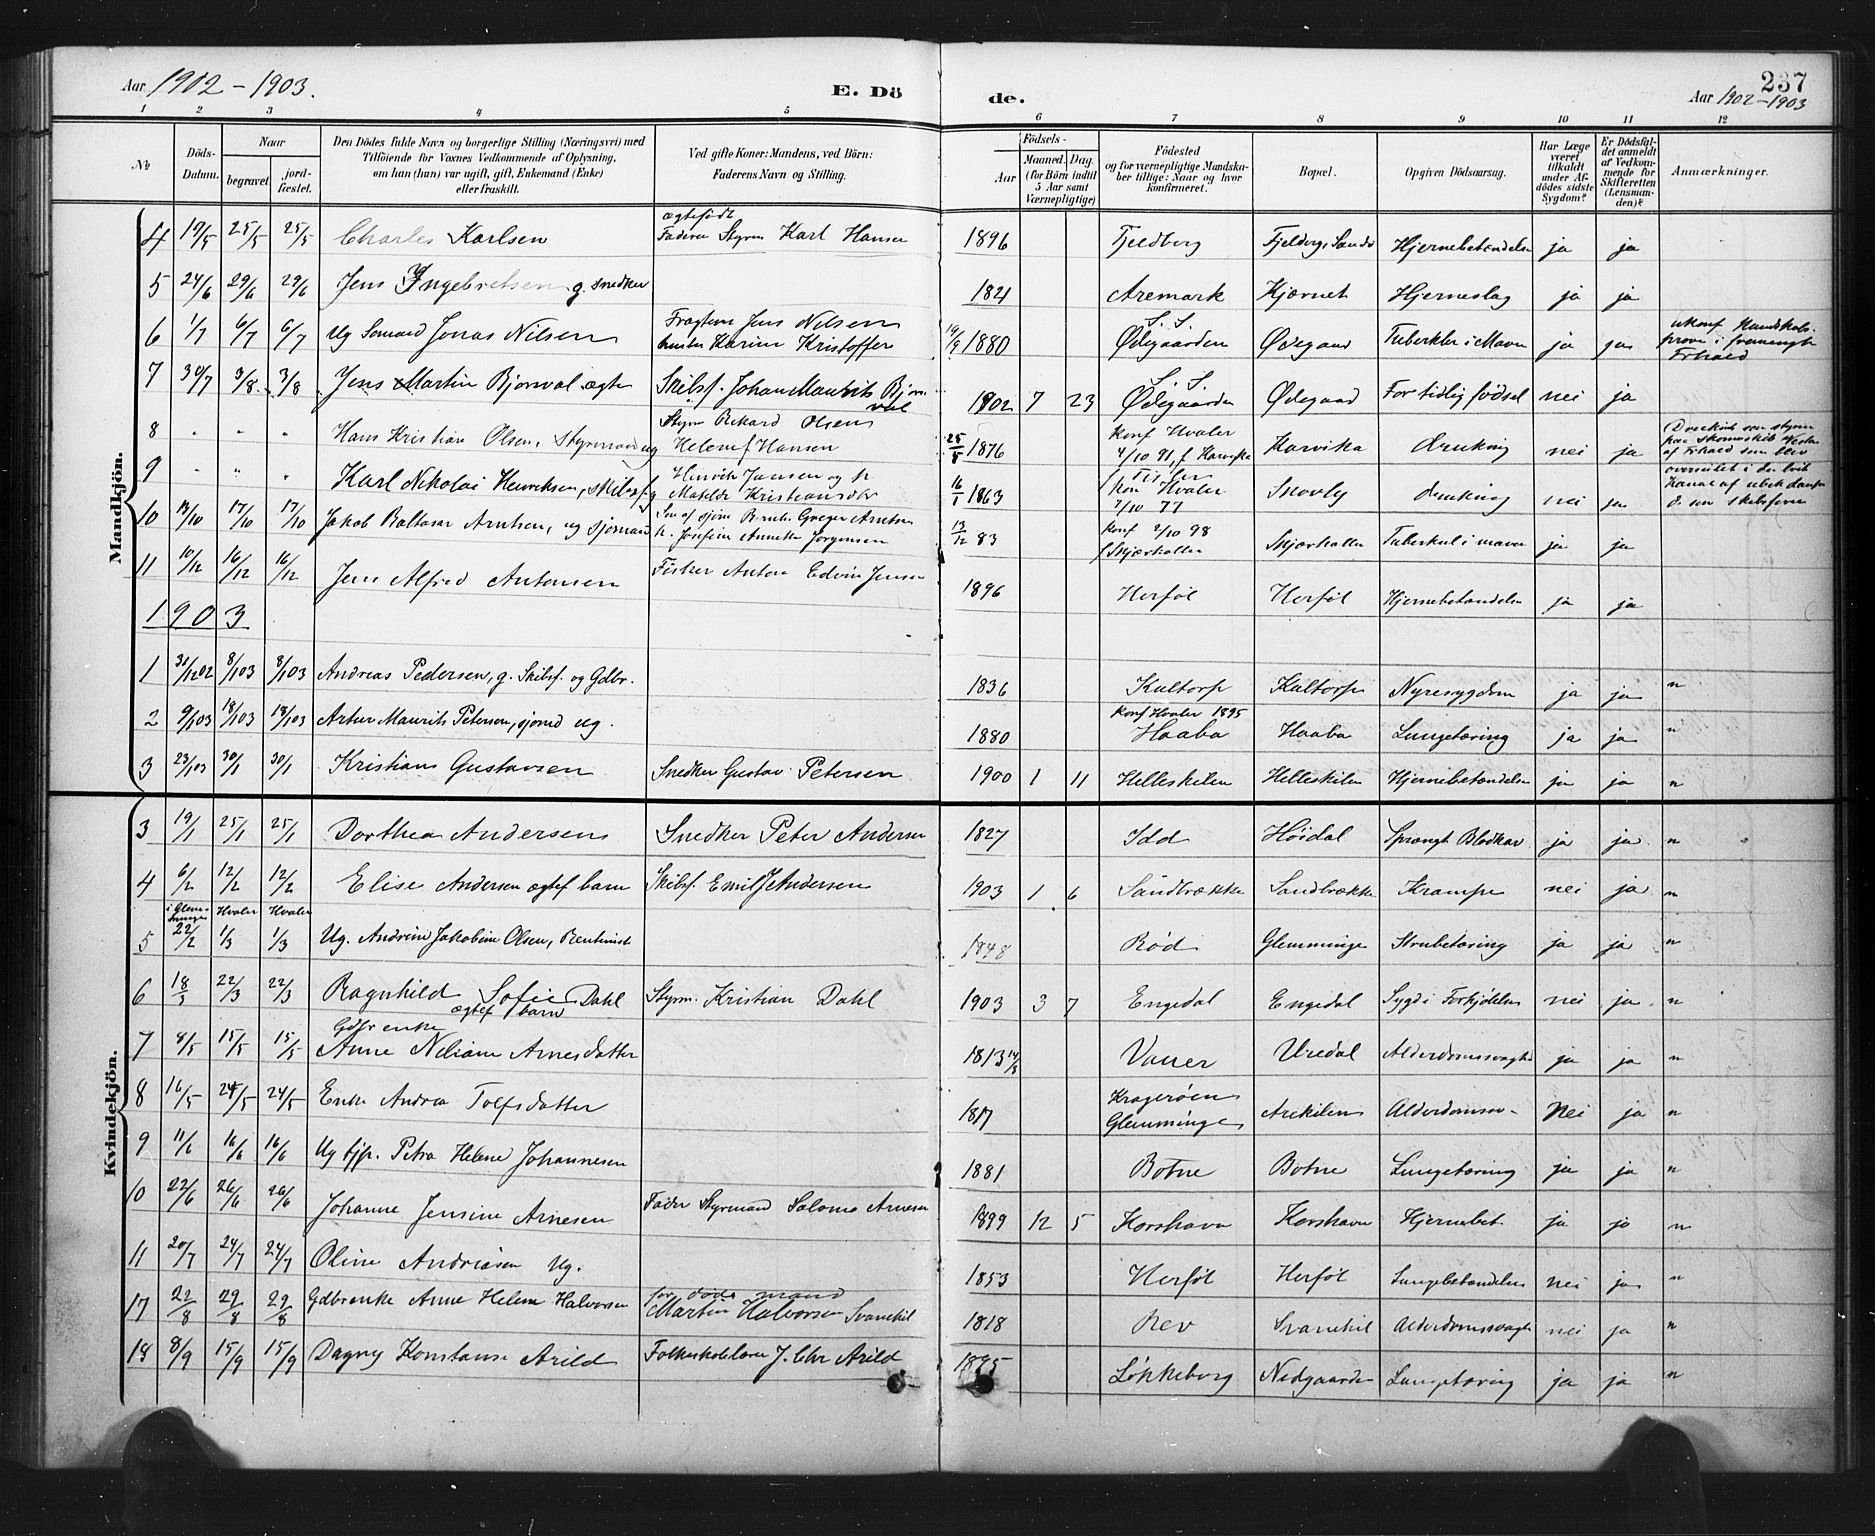 Aar 1902 - 1903.
E. Dö
de.
237
Aar 1902-1903
1 2 3 4 5 6 7 8 9 10 11 12
№
Döds-Datum.
Naar
begravet.
jord-fæstet.
Den Dödes fulde Navn og borgerlige Stilling (Næringsvei) med
Tilföiende for Voxnes Vedkommende af Oplysning,
om han (hun) var ugift, gift, Enkemand (Enke)
eller fraskilt.
Ved gifte Koner: Mandens, ved Börn:
Faderens Navn og Stilling.
Födsels-
Aar
Maaned. Dag.
(for Börn indtil
5 Aar samt
Værnepligtige)
Födested
og for værnepligtige Mandska-
ber tillige: Naar og hvor
konfirmeret.
Bopæl.
Opgiven Dödsaarsag.
Har Læge
været
tilkaldt
under Af-
dödes sidste
Sygdom?
Er Dödsfal-
det anmeldt
af Vedkom-
mende for
Skifteretten
(Lensman-
den)?
Anmærkninger.
Mandkjön.
4 19/5 25/5 25/5 Charles Karlsen ægtefødt Faderen Styrm Karl Hansen 1896 Fjeldberg Fjelberg, Sandø Hjernebetændelse ja ja
5 24/6 29/6 29/6 Jens Ingebretsen g. Snedker 1821 Aremark Kjærnet Hjerneslag ja ja
6 1/7 6/7 6/7 Ug Sømand Jonas Nilsen Jens Nilsen Karine Kristoffer 19/9 1880 S. S. Ødegaarden Ødegaard Tuberkler i Maven ja ja
7 30/7 3/8 3/8 Jens Martin Bjørnval ægte Skibsf. Johan Maurits Bjørnval 1902 7 23 S. S. Ødegaarden Ødegaard For tidlig fødsel nei ja
8 " " " Hans Kristian Olsen, Styrmand ug Styrm Rikard Olsen Helene Hansen 25/5 1876 Konf Hvaler 4/10 91, f Karvika Karvika drukning nei ja
9 " " " Karl Nikolai Henriksen, Skibsf g Henrik Jansen og h Matilde Kristiansdtr 16/1 1863 Konf Hvaler 7/10 77 Drukning nei ja
10 13/10 17/10 17/10 Jakob Baltasar Arntsen, ug sjømand Greger Arntsen h. Josefine Annette Jørgensen 13/12 83 Konf 2/10 98 f Skjærhallen Skjærhallen Tuberkul i maven ja ja
11 10/12 16/12 16/12 Jens Alfred Antonsen Fisker Anton Edvin Jensen 1896 Herføl Herføl Hjernebetændelse ja ja
1903
1 31/12 02 8/1 03 8/1 03 Andreas Pedersen, g. Skibsf. og Gdbr. 1836 Kultorp Kultorp Nyresygdom ja ja "
2 9/1 03 18/1 03 18/1 03 Artur Maurits Petersen, sjømd ug. 1880 Konf Hvaler 1895 Haaba Haaba Lungetæring ja ja "
3 23/1 03 30/1 30/1 Kristian Gustavsen Snedker Gustav Petersen 1900 1 11 Helleskilen Helleskilen Hjernebetændelse ja ja "
Kvindekjön.
3 19/1 25/1 25/1 Dorthea Andersen Snedker Peter Andersen 1827 Idd Høidal Sprængt Blodkar ja ja "
4 6/2 12/2 12/2 Elise Andersen ægtef barn Skibsf. Emil J Andersen 1903 1 6 Sandbrække Sandbrække Krampe nei ja "
5 i Glemminge 22/2 Hvaler 1/3 Hvaler 1/3 Ug. Andrine Jakobine Olsen, 1848 Rød Glemminge Strubetæring ja ja "
6 18/3 22/3 22/3 Ragnhild Sofie Dahl ægtef barn Styrm. Kristian Dahl 1903 3 7 Engedal Engedal Syg i Forkjølelse nei ja "
7 8/5 15/5 15/5 Gdbrenke Anne Neliane Arnesdatter 1813 14/8 Vauer Uredal Alderdomssvaghd ja ja "
8 16/5 24/5 24/5 Enke Andrea Tolfsdatter 1817 Kragerøen Glemminge Arekilen Alderdomssv. Nei ja "
9 11/6 16/6 16/6 Ug tjp. Petra Helene Johannesen 1881 Botne Botne Lungetæring ja ja "
10 22/6 26/6 26/6 Johanne Jensine Arnesen Fader Styrmand Salomo Arnesen 1899 12 5 Korshavn Korshavn Hjernebet ja ja "
11 20/7 24/7 24/7 Oline Andreasen Ug. 1853 Herføl Herføl Lungebetændelse nei ja "
17 22/8 29/8 29/8 Gdbrenke Anne Helene Halvorsen for. døde mand Martin Halvorsen Svanekil 1818 Rev Svanekil Alderdomssvaghd nei ja "
18 8/9 15/9 15/9 Dagny Konstanse Arild Folkeskolelærer J. Chr Arild 1895 Løkkeberg Nedgaarden Lungetæring ja ja "